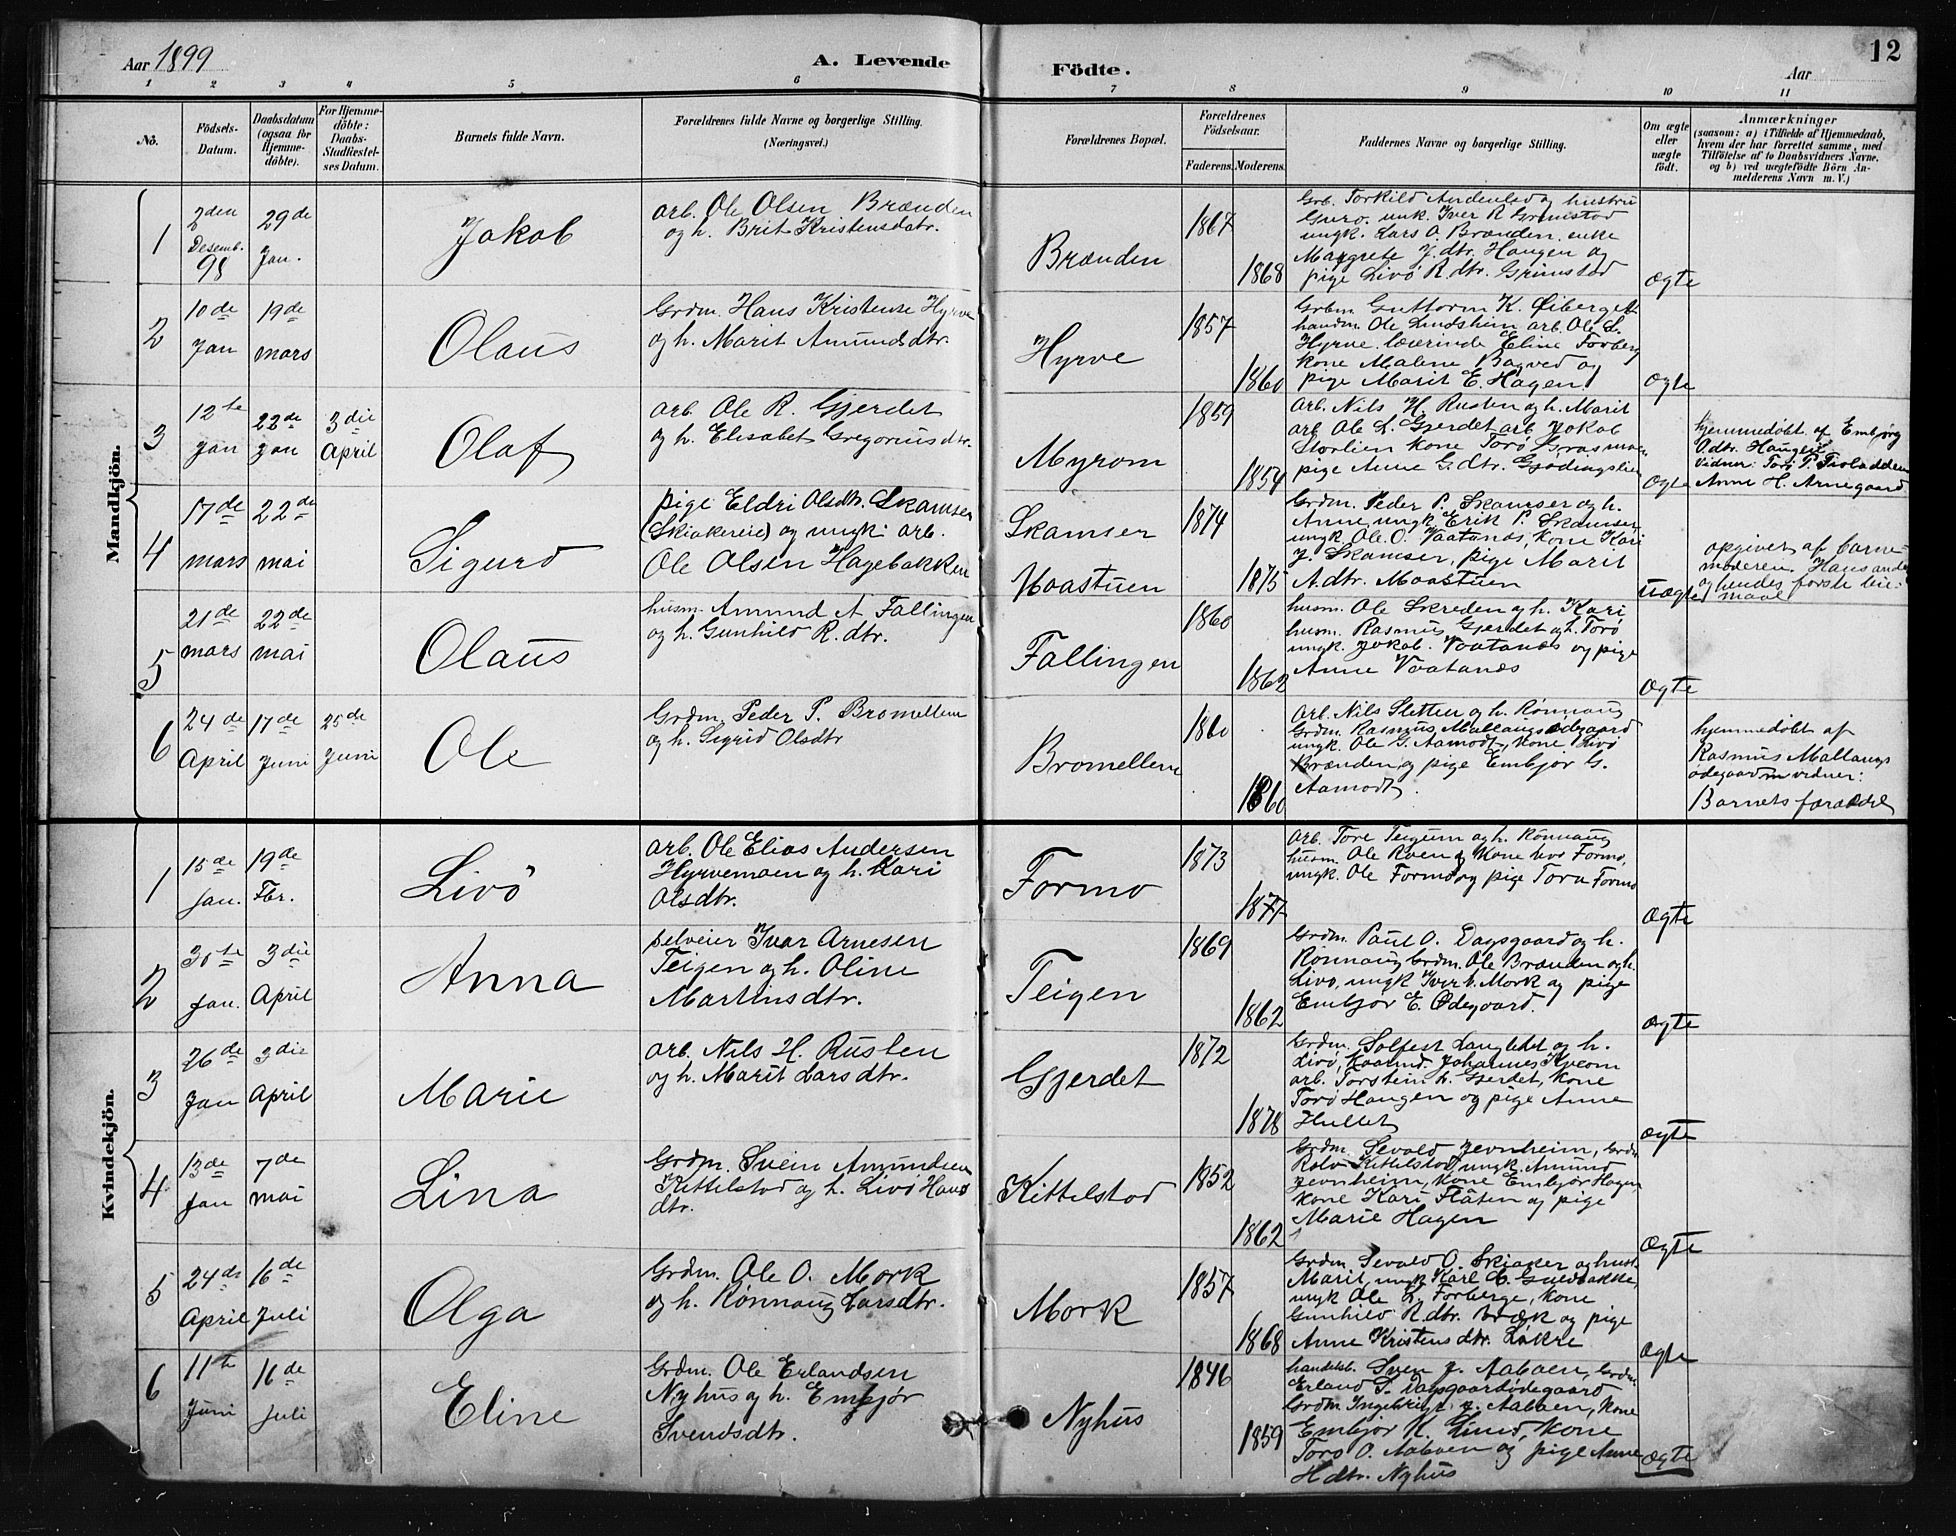 Aar 1899
A. Levende
Födte.
Aar
12
1 2 3 4 5 6 7 8 9 10 11
No.
Födsels-
Datum.
Daabsdatum
(ogsaa for
Hjemme-
döbte).
For Hjemme-
döbte:
Daabs-
Stadfæstel-
ses Datum.
Barnets fulde Navn.
Forældrenes fulde Navne og borgerlige Stilling.
(Næringsvei.)
Forældrenes Bopæl.
Forældrenes
Födselsaar.
Faderens. Moderens.
Faddernes Navne og borgerlige Stilling.
Om ægte
eller
uægte
födt.
Anmærkninger
(saasom: a) i Tilfælde af Hjemmedaab,
hvem der har forrettet samme, med
Tilföielse af to Daabsvidners Navne,
og b) ved uægtefödte Börn An-
melderens Navn m. V.)
Mandkjön.
1
den
Desemb.
98
29de
Jan.
Jakob
arb. Ole Olsen Brænden
og h. Brit Kristensdatr.
Brænden
1867
1868
Grb. Torkild og hustru
Guro. unk. Iver R Grimstad
ungk. Lars O. Brænden. enke
Margrete J. dtr. Haugen og
pige Livö R. dtr. Grimstad
ægte
2
10de
Jan
19de
mars
Olaus
Grdm. Hans Kristense Hyrve
og h. Marit Amundsdtr.
Hyrve
1857
1860
Grbm. Guttorm K.
husdm. Ole Lindsheim arb. Ole L.
Hyrve. lærerinde Eline Forberg
kone Malene Bagved og
pige Marit E. Hagen.
ægte
3
12te
Jan
22de
Jan
3die
April
Olaf
arb. Ole R. Gjerdet
og h. Elisabet Gregoriusdtr.
Myrom
1859
1854
Arb. Nils H. Rusten og h. Marit
arb. Ole L. Gjerdet arb. Jakob
Storlien kone Torö
pige Anne G. dtr.
ægte
hjemmedöbt af Embjörg
O.dtr. Haugen
vidner: Torö P.
Anne H. Arnegaard
4
17de
mars
22de
mai
Sigurd
pige Eldri Olsdtr. Skamser
(Skiakereie) og ungk. arb.
Ole Olsen Hagebakken
Skamser
Moastuen
1874
1875
Grdm. Peder P. Skamser og h.
Anne, ungk. Erik P. Skamser
ungk. Ole O. Vaatanes, kone Kari
J. Skamser, pige Marit
A. dtr. Moastuen
uægte
opgivet af barne-
moderen. Hans anden
og hendes förste leier-
maal
5
21de
mars
22de
mai
Olaus
husm. Amund A Fallingen
og h. Gunhild R. dtr.
Fallingen
1860
1862
husm. Ole Skreden og h. Kari
husm. Rasmus Gjerdet og h. Torö
ungk. Jakob. Vaatanes og pige
Anne Vaatanes
ægte
6
24de
April
17de
Juni
25de
Juni
Ole
Grdm. Peder P. Bromellem
og h. Sigrid Olsdtr
Bromellem
1860
1860
Arb. Nils Sletten og h. Rönnaug
Grdm. Rasmus Mallangsödegaard
ungk. Ole G. Aamodt, kone Livö
Brænden og pige Embjör G.
Aamodt.
hjemmedöbt af
Rasmus Mallangs
ödegaard vidner:
Barnets forældre
Kvindekjön.
1
15de
Jan.
19de
Fbr.
Livö
arb. Ole Elias Andersen
Hyrvemoen og h. Kari
Olsdtr.
Formo
1873
1877
Arb. Tore Teigum og h. Rönnaug
husm. Ole Roen og kone Formo,
ungk. Ole Formo og pige Tora Formo
ægte
2
30te
Jan.
3die
April
Anna
selveier Ivar Arnesen
Teigen og h. Oline
Martinsdtr.
Teigen
1869
1862
Grdm. Paul O. Dagsgaard og h.
Rönnaug Grdm. Ole Brænden og h.
Livö, ungk Iver L. Mork og pige
Embjör E. Ödegaard.
ægte
3
26de
Jan
3die
April
Marie
arb. Nils H. Rusten
og h. Marit Larsdtr.
Gjerdet
1872
1878
Grdm. Solfest Langledet og h.
Livö, Johannes
arb. Torstein L. Gjerdet, kone
Torö Haugen og pige Anne
Hullet
ægte
4
13de
Jan
7de
mai
Lina
Grdm. Svein Amundsen
Kittelstad og h. Livö Hans
dtr.
Kittelstad
1852
1862
Grdm. Sevald Jevnheim, Grdm
Rolv Kittelstad, ungk. Amund
Jevnheim, kone Embjör Hagen,
kone Kari Flåten og pige
Marie Hagen
ægte
5
24de
April
16de
Juli
Olga
Grdm. Ole O. Mork
og h. Rönnaug Larsdtr.
Mork
1857
1868
Grdm. Sevald O. Skiaker og hust.
Marit, ungk. Karl
ungk Ole L. Forberge, kone
Gunhild R. dtr. og pige
Anne Kristensdtr. Lökre
ægte
6
11te
Juni
16de
Juli
Eline
Grdm. Ole Erlandsen
Nyhus og h. Embjör
Svendsdtr.
Nyhus
1846
1859
handelsb. Sven J. Aaboen, Grdm.
Erland S. Dagsgaardödegaard
Grdm. Ingebrigt J. Aaboen, kone
Embjör K. Lund, kone
Torö O. Aaboen og pige Anne
H dtr. Nyhus
ægte